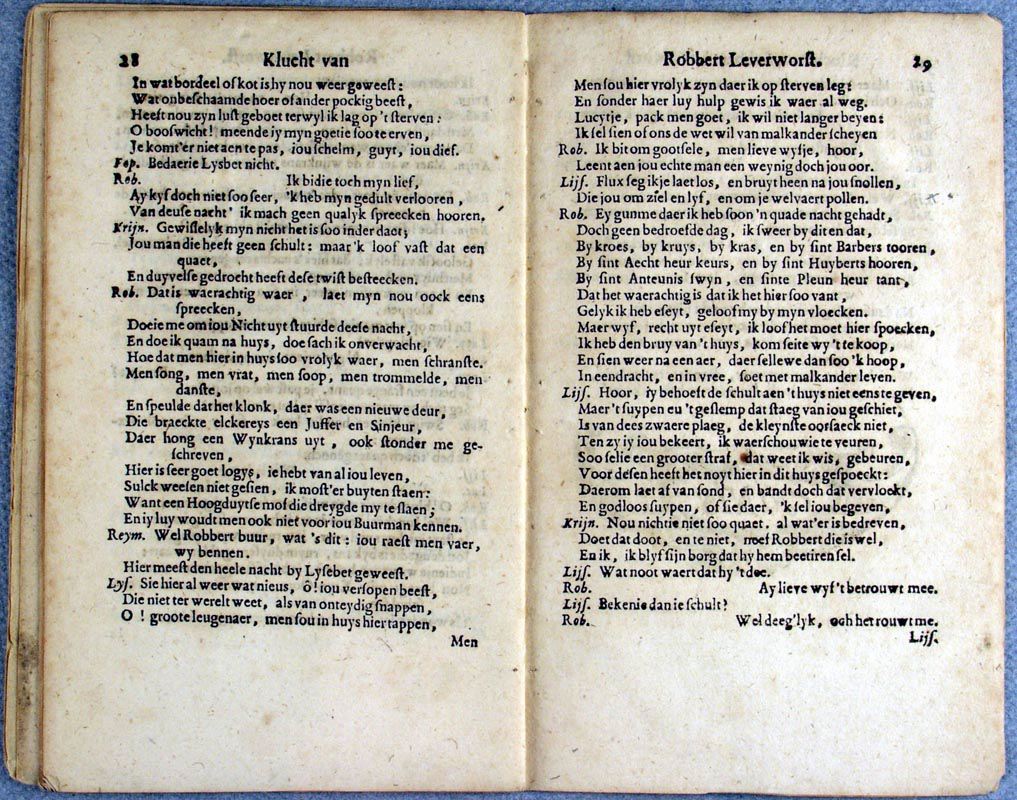 28 Klucht van
In wat bordeel of kot is hy nou weer geweest:
Wat onbeschaamde hoer of ander pockig beest,
Heeft nou zyn lust geboet terwyl ik lag op 't sterven:
O booswicht! meende jy myn goetie soo te erven,
Je komt'er niet aen te pas, iou schelm, guyt, iou dief.
Fop. Bedaerie Lysbet nicht.
Rob. Ik bidie toch myn lief,
Ay kyf doch niet soo seer, 'k heb myn gedult verlooren,
Van deuse nacht' ik mach geen qualyk spreecken hooren.
Krijn. Gewisselyk myn nicht het is soo inder daat;
Jou man die heeft geen schult: maar 'k loof vast dat een
quaet,
En duyvelse gedrocht heeft dese twist besteecken.
Rob. Dat is waerachtig waer, laet myn nou oock eens
spreecken,
Doeie me om iou Nicht uyt stuurde deese nacht,
En doe ik quam na huys, doe sach ik onverwacht,
Hoe dat men hier in huys soo vrolyk waer, men schranste.
Men song, men vrat, men soop, men trommelde, men
danste,
En speulde dat het klonk, daer was een nieuwe deur,
Die braeckte elckereys een Juffer en Sinjeur,
Daer hong een Wynkrans uyt, ook stonder me ge-
schreven,
Hier is seer goet logys, ie hebt van al iou leven,
Sulck weesen niet gesien, ik most'er buyten staen:
Want een Hoogduytse mof die dreygde my te slaen;
En iy luy woudt men ook niet voor iou Buurman kennen.
Reym. Wel Robbert buur, wat 's dit: iou raest men vaer,
wy bennen.
Hier meest den heele nacht by Lysebet geweest.
Lys. Sie hier al weer wat nieus, ô! iou versopen beest,
Die niet ter werelt weet, als van ontydig snappen,
O! groote leugenaer, men sou in huys hier tappen,
Men
Robbert Leverworst. 29
Men sou hier vrolyk zyn daer ik op sterven leg:
En sonder haer luy hulp gewis ik waer al weg.
Lucytje, pack men goet, ik wil niet langer beyen:
Ik sel sien of ons de wet wil van malkander scheyen
Rob. Ik bit om gootsele, men lieve wyfje, hoor,
Leent aen jou echte man een weynig doch jou oor.
Lijs. Flux seg ikje laet los, en bruyt heen na jou snollen,
Die jou om ziel en lyf, en om je welvaert pollen.
Rob. Ey gunme daer ik heb soon 'n quade nacht gehadt,
Doch geen bedroefde dag, ik sweer by dit en dat,
By kroes, by kruys, by kras, en by sint Barbers tooren,
By sint Aecht heur keurs, en by sint Huyberts hooren,
By sint Anteunis swyn, en sinte Pleun heur tant,
Dat het waerachtig is dat ik het hier soo vant,
Gelyk ik heb eseyt, geloof my by myn vloecken.
Maer wyf, recht uyt eseyt, ik loof het moet hier spoecken,
Ik heb den bruy van 't huys, kom seite wy 't te koop,
En sien weer na een aer, daer sellewe dan soo 'k hoop,
In eendracht, en in vree, soet met malkander leven.
Lijs. Hoor, iy behoeft de schult aen 't huys niet eens te geven,
Maer 't suypen en 't geslemp dat staeg van iou geschiet,
Is van dees zwaere plaeg, de kleynste oorsaeck niet,
Ten zy iy iou bekeert, ik waerschou wie te veuren,
Soo selie een grooter straf, dat weet ik wis, gebeuren,
Voor desen heeft het noyt hier in dit huys gespoeckt:
Daerom laet af van sond, en bandt doch dat vervloekt,
En godloos suypen, of sie daer, 'k sel iou begeven,
Krijn. Nou nichtie niet soo quaet. al wat'er is bedreven,
Doet dat doot, en te niet, neef Robbert die is wel,
En ik, ik blyf sijn borg dat hy hem beetiren sel.
Lijs. Wat noot waert dat hy 't dee.
Rob. Ay lieve wyf 't betrouwt mee.
Lijs. Bekenie dan ie schult?
Rob. Wel deeg'lyk, och het rouwt me.
Lijs.